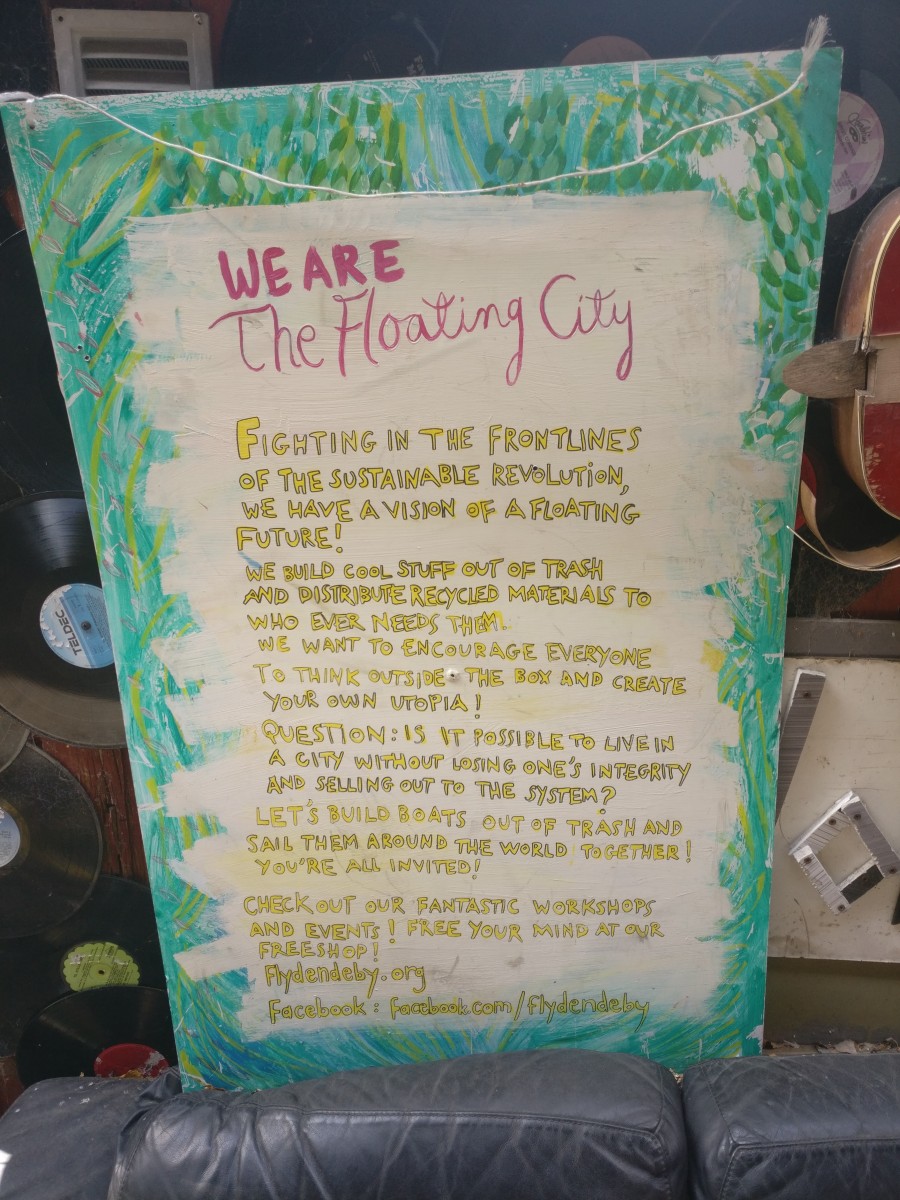 WE ARE
The Floating City
FIGHTING IN THE FRONTLINES
OF THE SUSTAINABLE REVOLUTION,
WE HAVE A VISION OF A FLOATING
FUTURE!
WE BUILD COOL STUFF OUT OF TRASH
AND DISTRIBUTE RECYCLED MATERIALS TO
WHO EVER NEEDS THEM.
WE WANT TO ENCOURAGE EVERYONE
TO THINK OUTSIDE THE BOX AND CREATE
YOUR OWN UTOPIA!
QUESTION: IS IT POSSIBLE TO LIVE IN
A CITY WITHOUT LOSING ONE'S INTEGRITY
AND SELLING OUT TO THE SYSTEM?
LET'S BUILD BOATS OUT OF TRASH AND
SAIL THEM AROUND THE WORLD TOGETHER!
YOU'RE ALL INVITED!
CHECK OUT OUR FANTASTIC WORKSHOPS
AND EVENTS! FREE YOUR MIND AT OUR
FREESHOP!
Flydendeby.org
Facebook: facebook.com/flydendeby
TELDEC